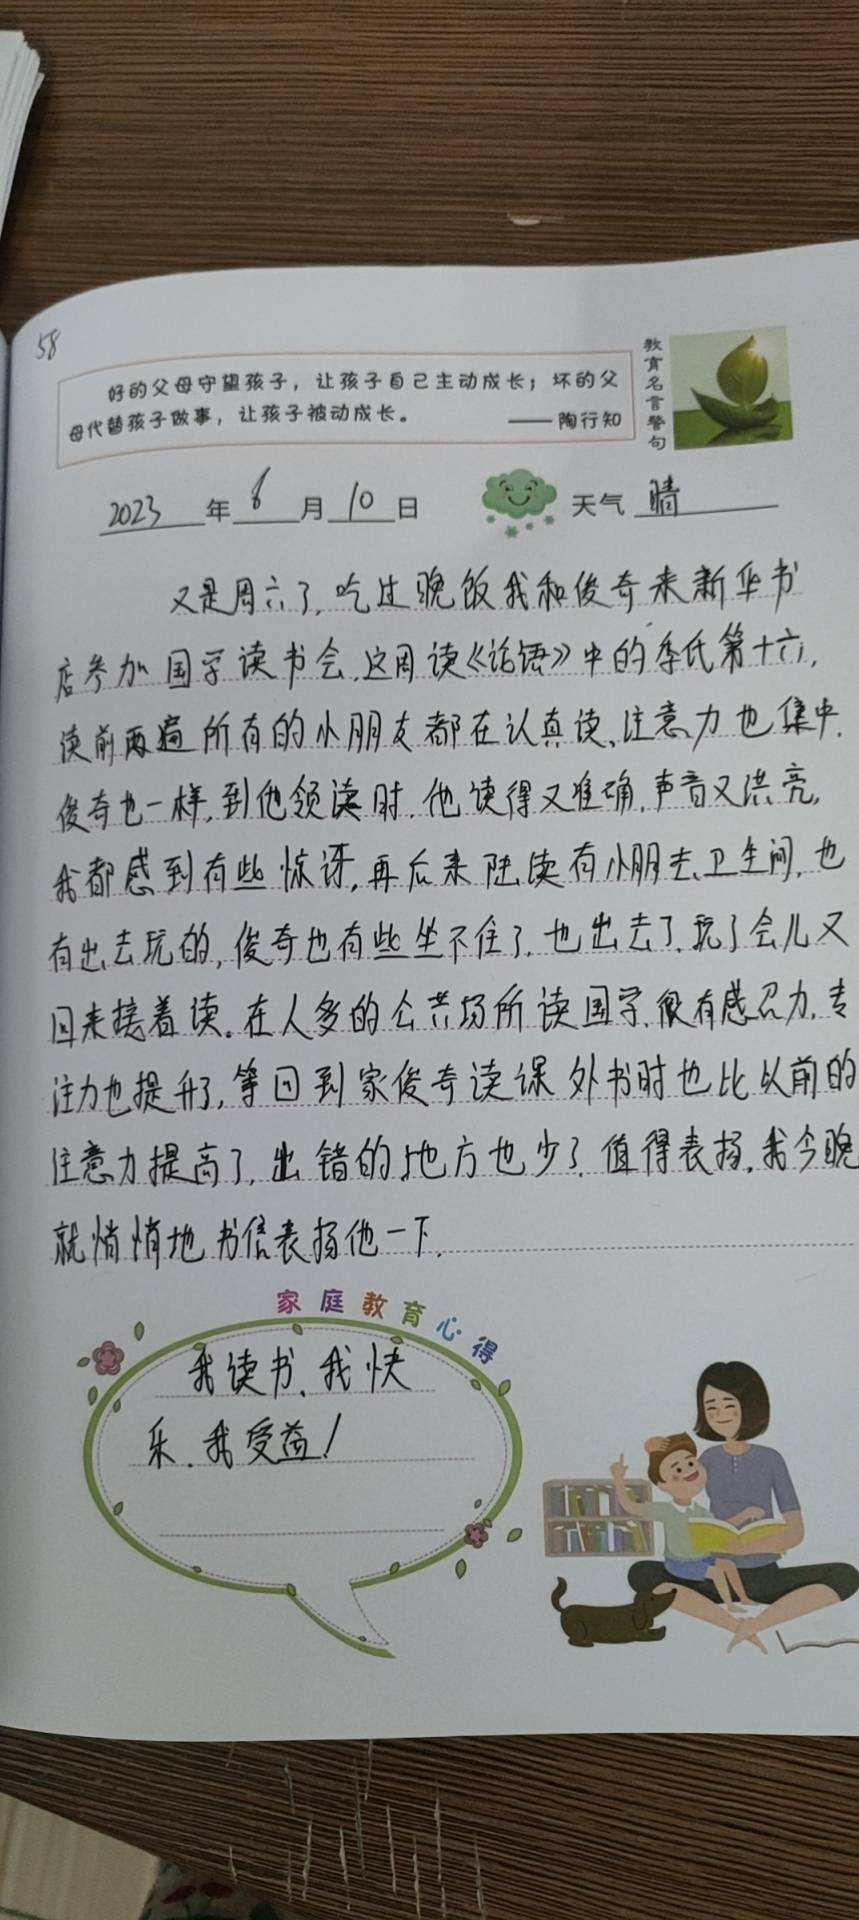 58
好的父母守望孩子，让孩子自己主动成长；坏的父
母代替孩子做事，让孩子被动成长。 ——陶行知
教育名言警句
2023年6月10日 天气 晴
又是周六了,吃过晚饭我和俊奇来新华书
店参加国学读书会,这周读《论语》中的季氏第十六,
读前两遍所有的小朋友都在认真读、注意力也集中.
俊奇也一样,到他领读时.他读得又准确,声音又洪亮,
我都感到有些惊讶,再后来陆读有小朋去卫生间,也
有出去玩的,俊奇也有些坐不住了,也出去了,玩了会儿又
回来接着读。在人多的公共场所读国学,很有感召力,专
注力也提升了,等回到家俊奇读课外书时也比以前的
注意力提高了,出错的地方也少了.值得表扬,我今晚
就悄悄地书信表扬他一下.
家庭教育心得
我读书、我快
乐、我受益!